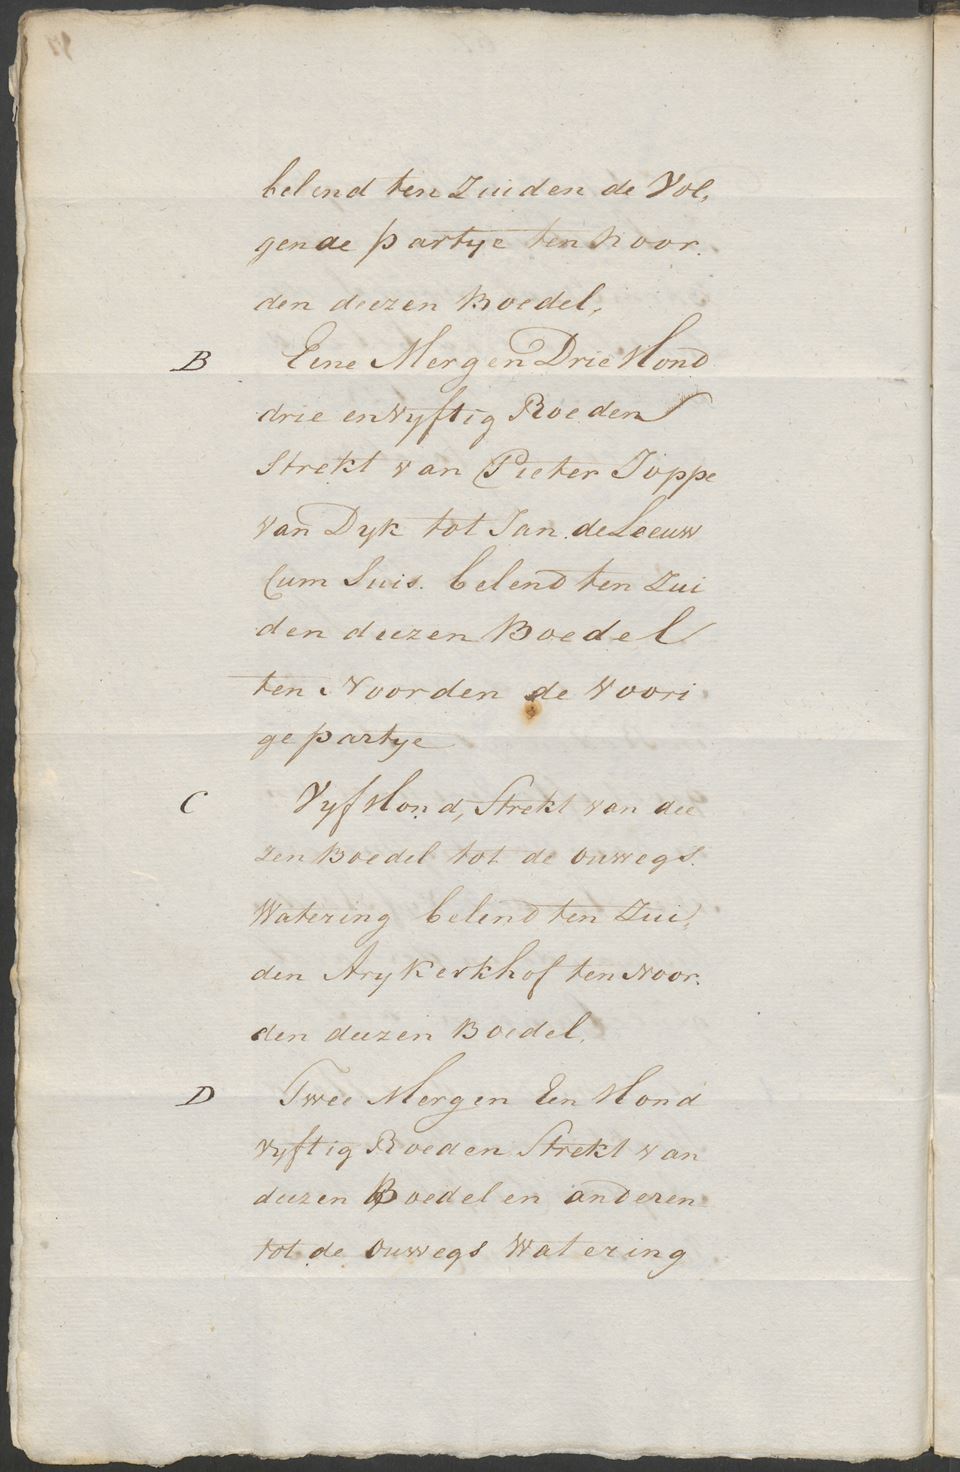 belend ten Zuiden de Vol,
gende partye ten Noor.
den deezen Boedel,
B Eene Mergen Drie Hond
drie en Vyftig Roeden
Strekt van Pieter Joppe
van Dyk tot Jan de Leeuw
Cum Suis. belend ten Zui
den deezen Boedel
ten Noorden de Voori
ge partye
C Vyf Hond, Strekt van dee
zen Boedel tot de Ouwegs
Watering belend ten Zui,
den Ary Kerkhof ten Noor.
den deezen Boedel.
D Twee Mergen Een Hond
vyftig Roeden Strekt van
deezen Boedel en anderen
tot de Ouwegs Watering